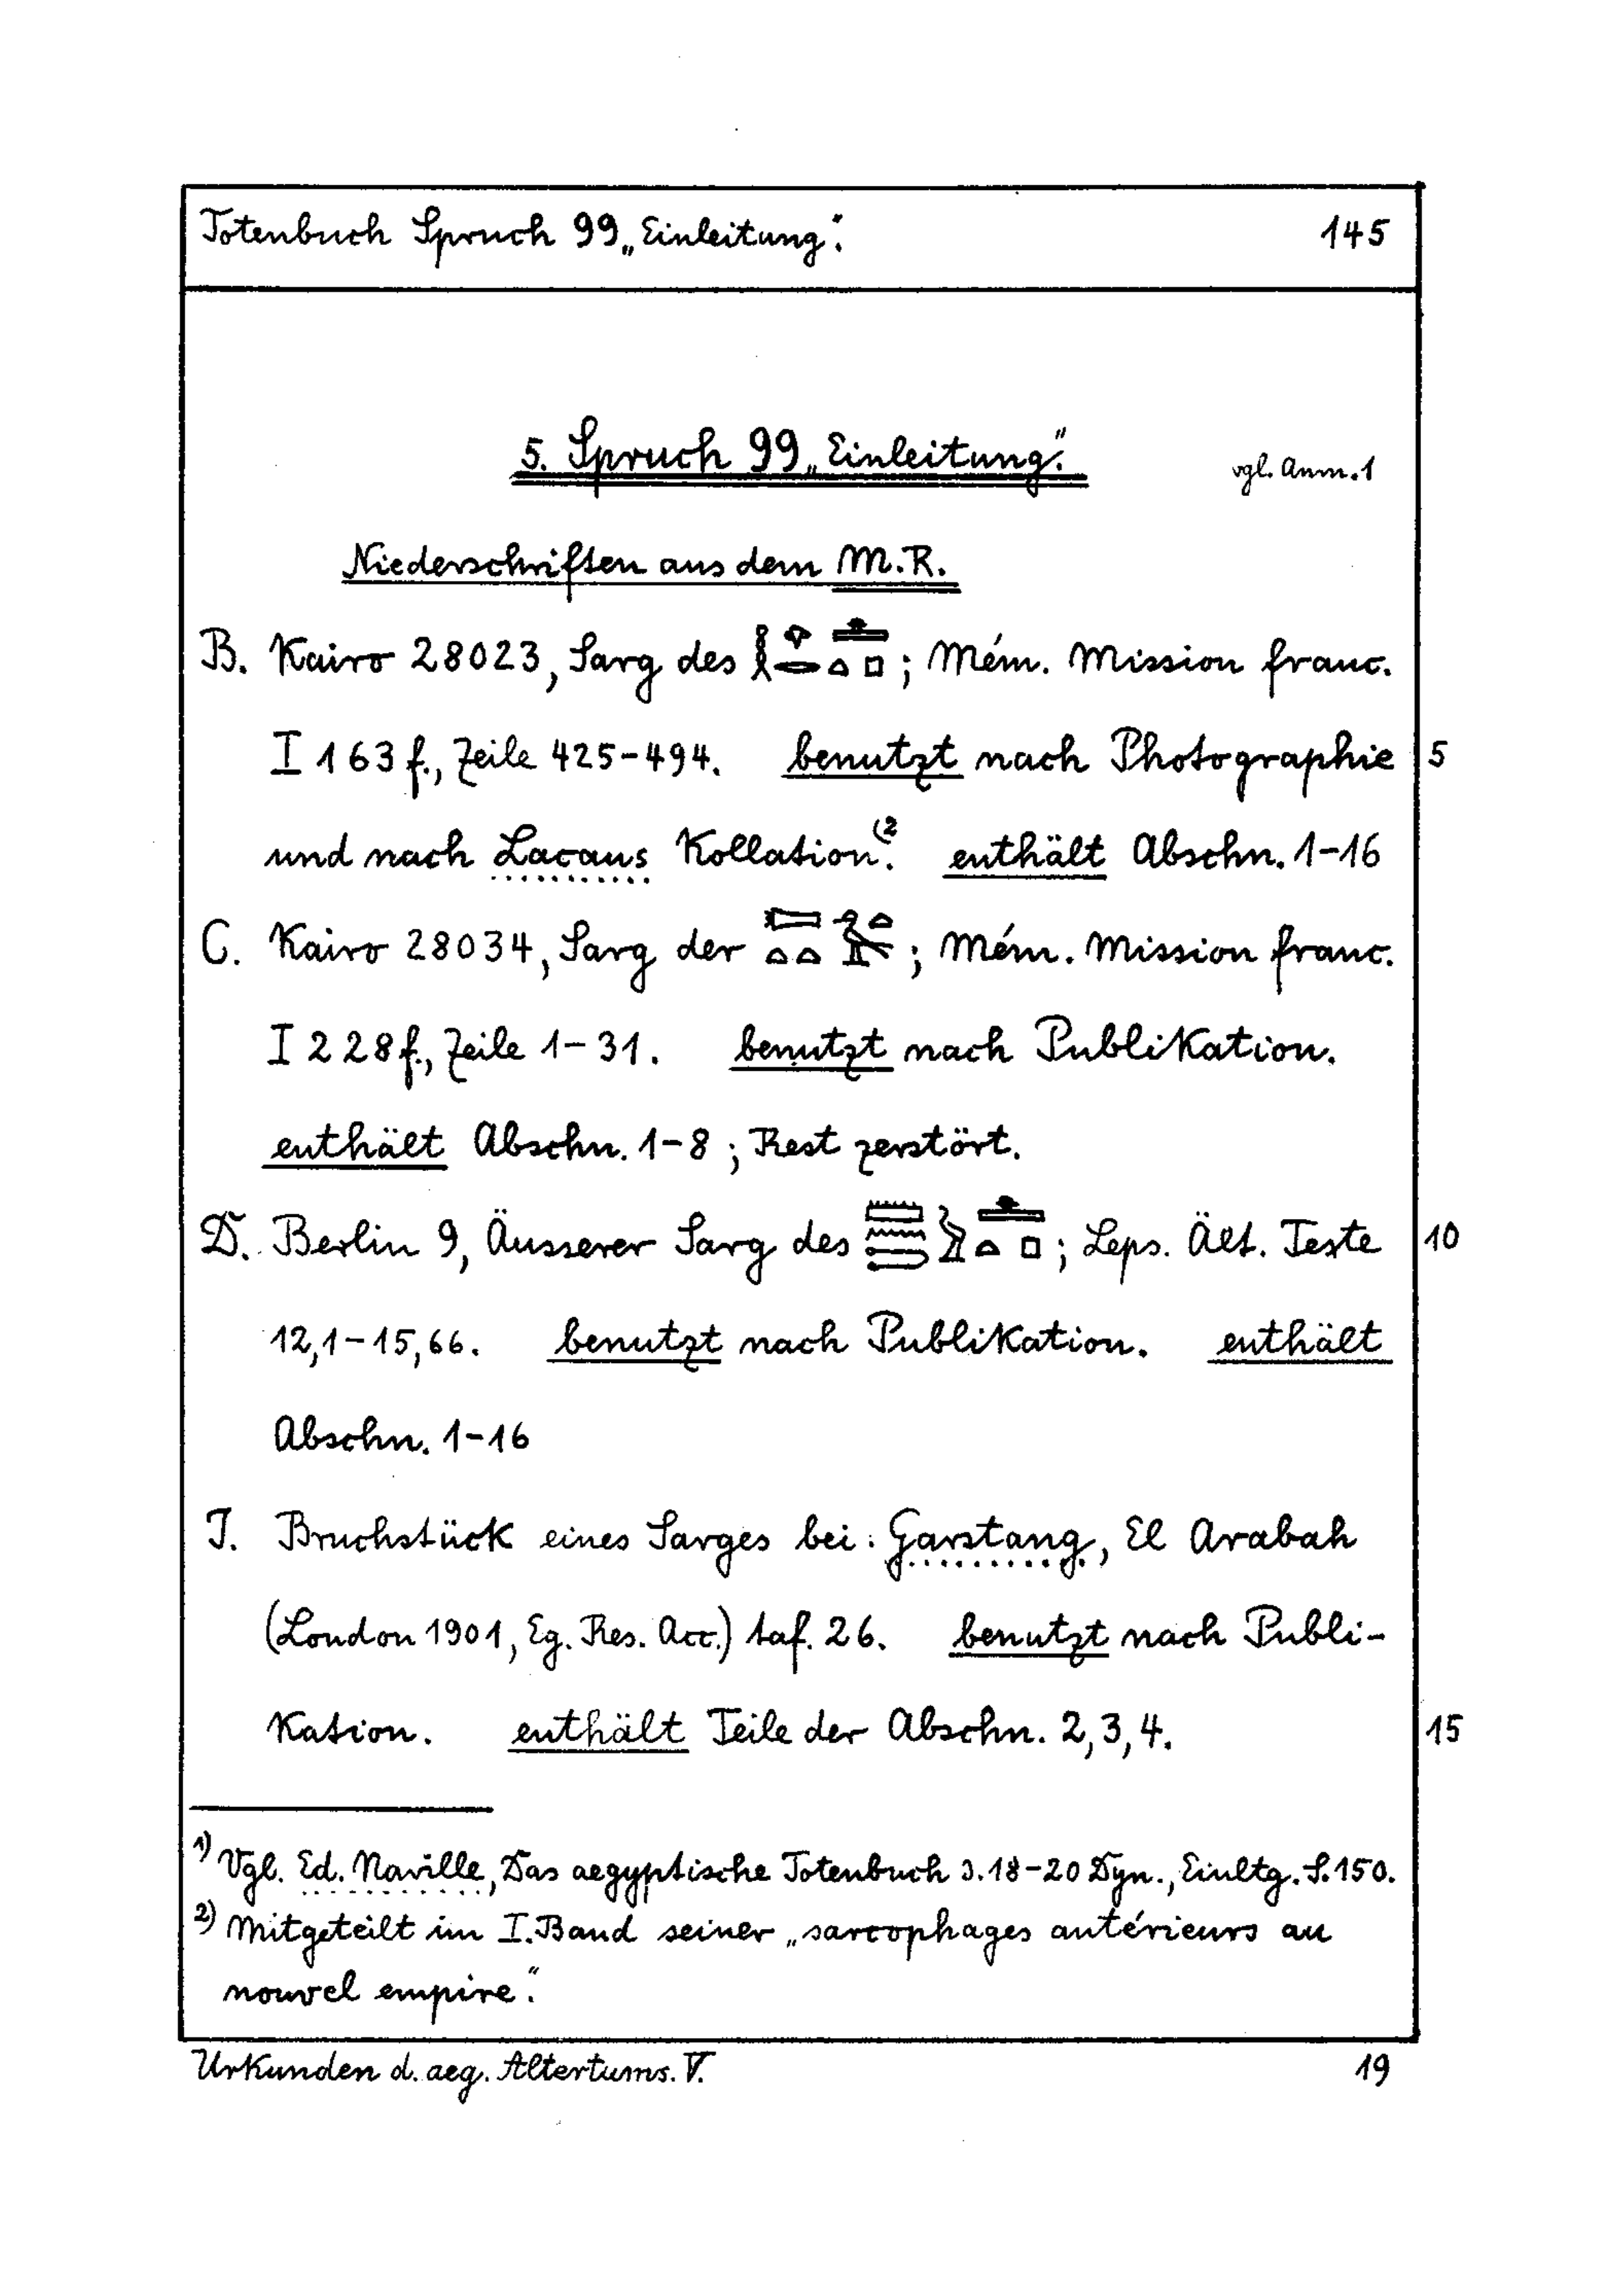 Totenbuch Spruch 99 „Einleitung“. 145
5. Spruch 99 „Einleitung“. vgl. Anm. 1
Niederschriften aus dem M.R.
B. Kairo 28023, Sarg des 𓎛𓁷𓂋𓊵𓏏𓊪; Mém. Mission franc.
I 163 f., Zeile 425-494. benutzt nach Photographie 5
und nach Lacaus Kollation.(2 enthält Abschn. 1-16
C. Kairo 28034, Sarg der ; Mém. Mission franc.
I 228 f., Zeile 1-31. benutzt nach Publikation.
enthält Abschn. 1-8; Rest zerstört.
D. Berlin 9, Äusserer Sarg des 𓏠𓈖𓍿𓅱𓊵𓏏𓊪; Leps. Ält. Texte 10
12,1-15,66. benutzt nach Publikation. enthält
Abschn. 1-16
J. Bruchstück eines Sarges bei: Garstang, El Arabah
(London 1901, Eg. Res. Acc.) taf. 26. benutzt nach Publi-
kation. enthält Teile der Abschn. 2,3,4. 15
1) Vgl. Ed. Naville, Das aegyptische Totenbuch d. 18-20 Dyn., Einltg. S. 150.
2) Mitgeteilt im I. Band seiner „sarcophages antérieurs au
nouvel empire“.
Urkunden d. aeg. Altertums. V. 19